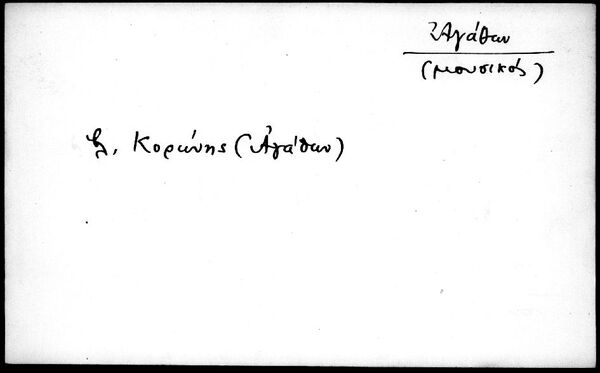 Ἀγάθων
(μουσικός)
βλ. Κορώνης (Ἀγάθων)